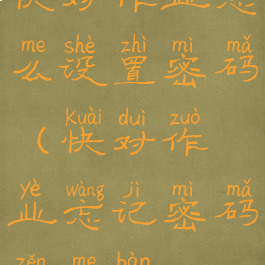 快对作业怎
me shè zhì mì mǎ
么设置密码
Kuài duì zuò
(快对作
yè wàng jì mì mǎ
业忘记密码
zěn me bàn